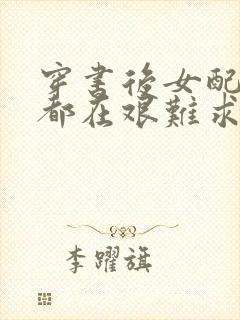 穿書後女配
都在艱難求
李躍旗